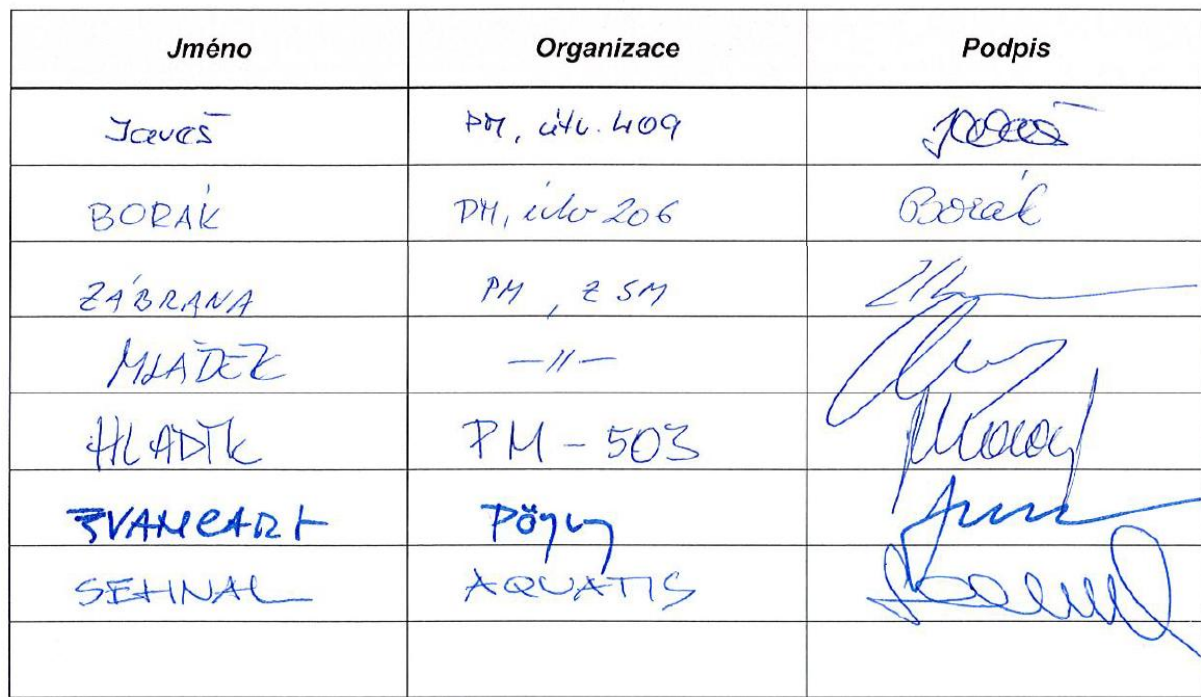 Jméno Organizace Podpis
Janeš PM, útv. 409
BORÁK PM, útv 206 Borák
ZÁBRANA PM, Z SM
MLÁDEK —//—
HLADÍK PM - 503
ŠVANCARA Pöyry
SEHNAL AQUATIS